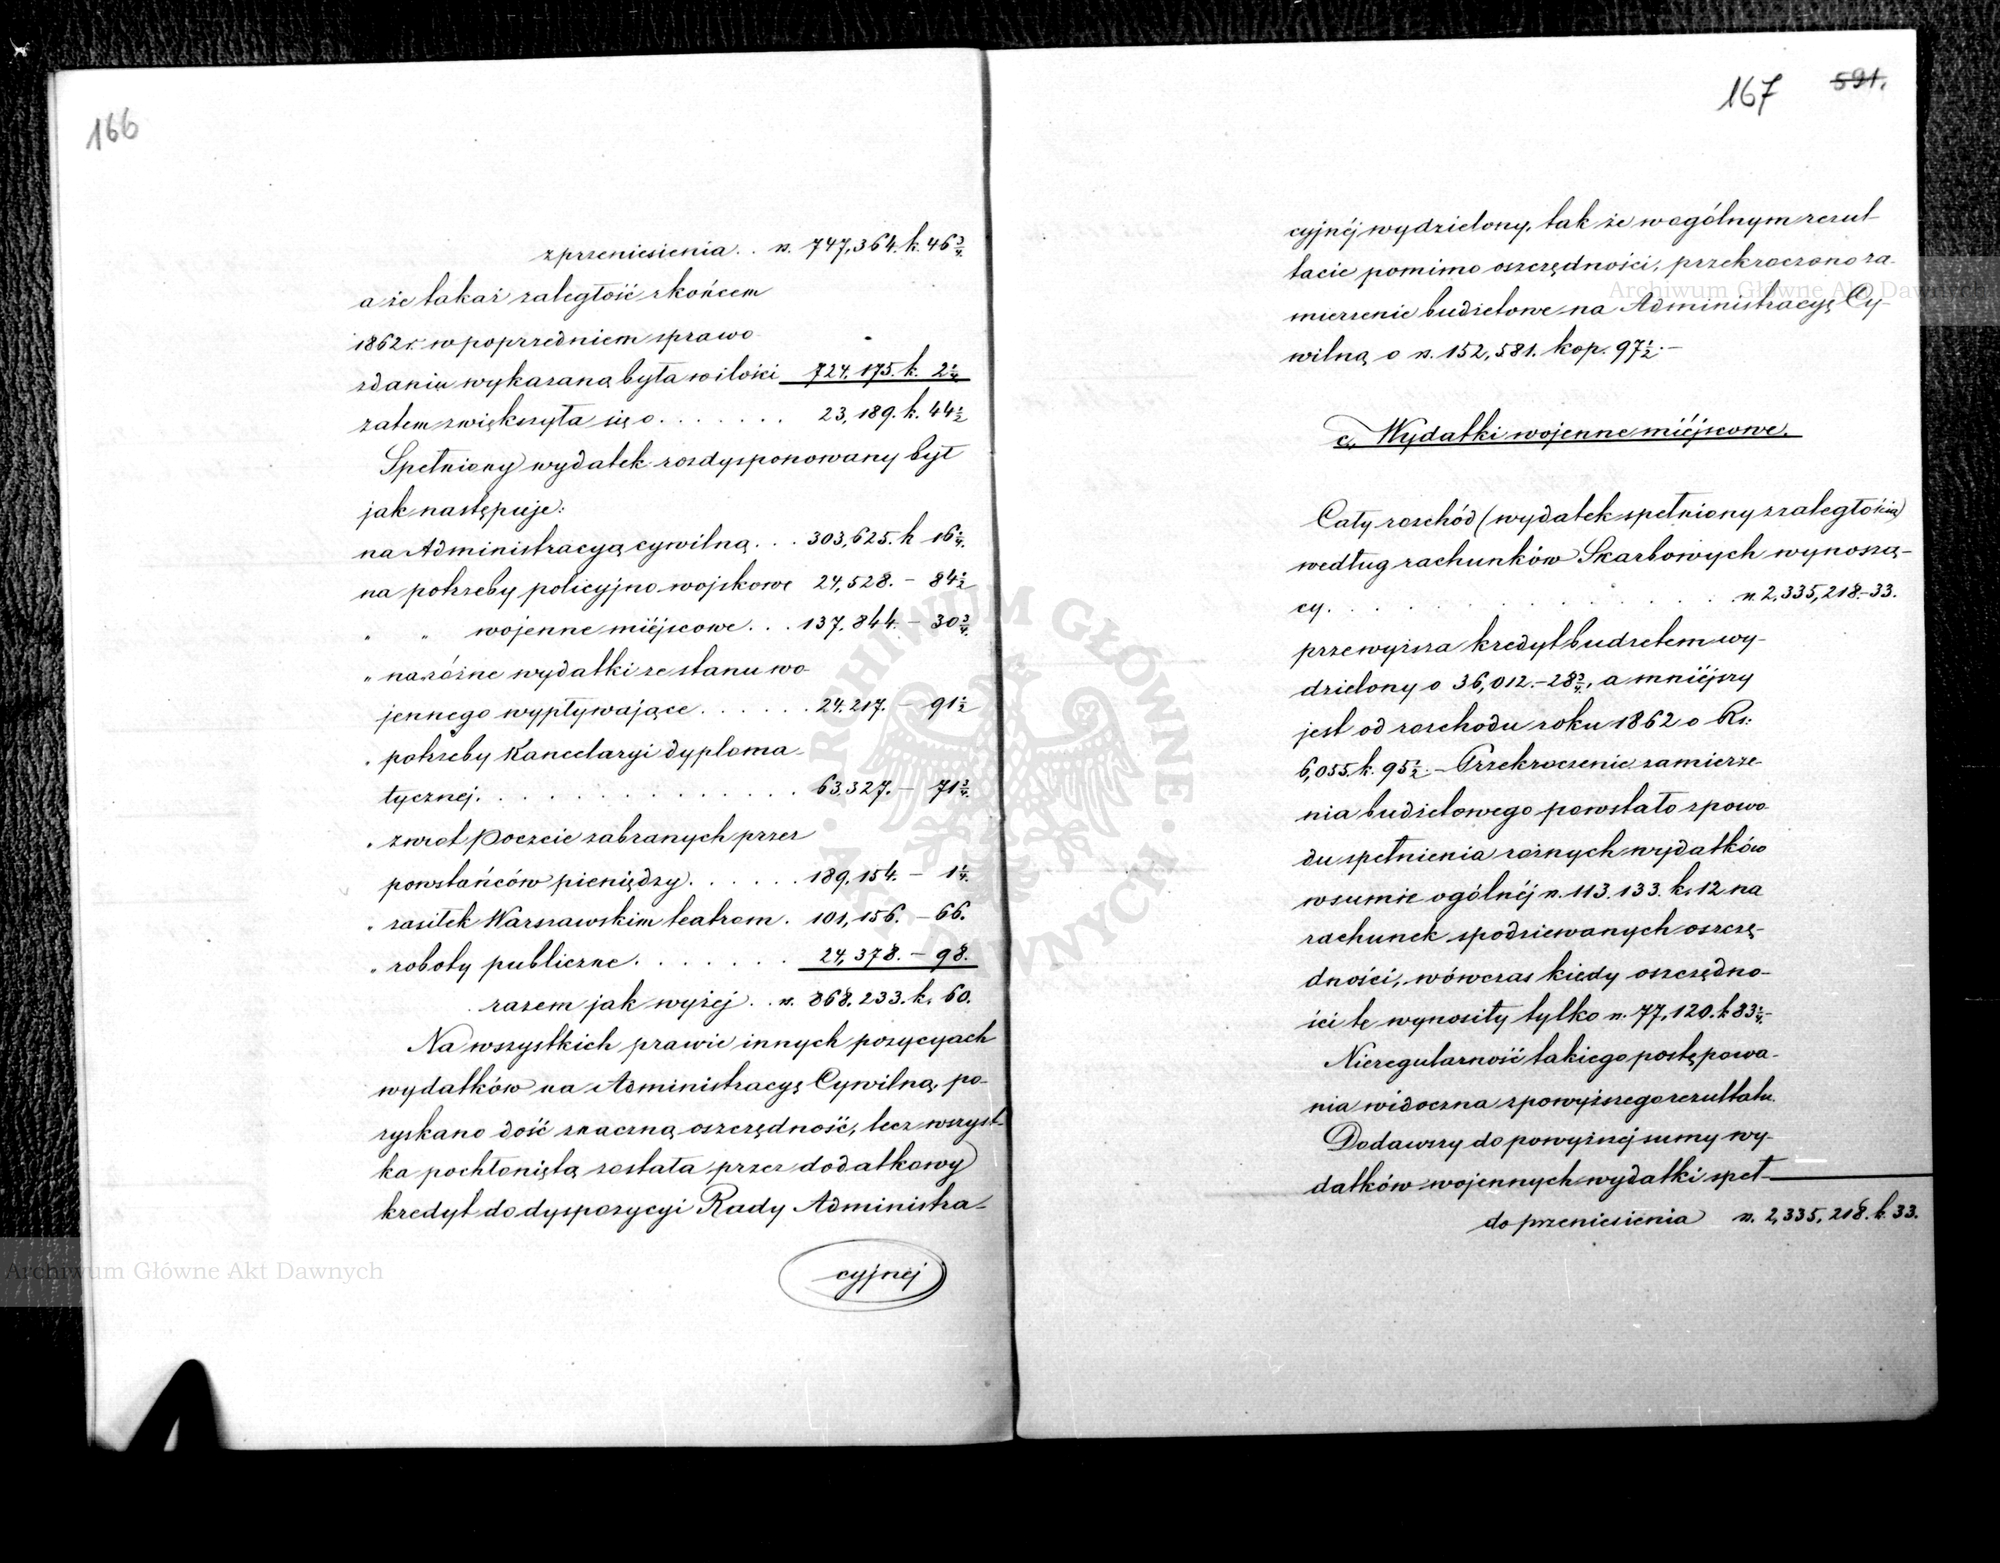 166
z przeniesienia . . rs. 747,364. k. 46 3/4.
a że takaż zaległość z końcem
1862 r. w poprzedniem sprawo-
zdaniu wykazaną była w ilości 724.175. k. 2 1/4.
zatem zwiększyła się o . . . . . . . 23,189. k. 44 1/2
Spełniony wydatek rozdysponowany był
jak następuje:
na Administracyą cywilną . . . 303,625. k 16 1/4.
na potrzeby policyjno wojskowe 24,528. – 84 1/2
" " wojenne miéjscowe . . . 137.844. – 30 3/4.
" na różne wydatki ze stanu wo-
jennego wypływające . . . . . . 24.217. – 91 1/2
" potrzeby Kancelaryi dyploma-
tycznej . . . . . . . . . . . . . . 63.327. – 71 3/4.
" zwrot Poczcie zabranych przez
powstańców pieniędzy . . . . . . 189.154. – 1 1/4.
" zasiłek Warszawskim teatrom . 101,156. – 66.
" roboty publiczne . . . . . . . 24,378. – 98.
razem jak wyżej . . rs. 868.233. k. 60.
Na wszystkich prawie innych pozycyach
wydatków na Administracyę Cywilną, po-
zyskano dość znaczną oszczędność, lecz wszyst-
ka pochłoniętą została przez dodatkowy
kredyt do dyspozycyi Rady Administra-
cyjnej
167 591.
cyjnéj wydzielony, tak że w ogólnym rezul-
tacie pomimo oszczędności, przekroczono za-
mierzenie budżetowe na Administracyę Cy-
wilną o rs. 152,581. kop. 97 1/2. –
c, Wydatki wojenne miéjscowe.
Cały rozchód (wydatek spełniony z zaległością)
według rachunków Skarbowych wynoszą-
cy . . . . . . . . . . . . . . rs. 2,335,218.–33.
przewyższa kredyt budżetem wy-
dzielony o 36,012.–28 3/4, a mniéjszy
jest od rozchodu roku 1862 o Rs:
6,055. k. 95 1/2. – Przekroczenie zamierze-
nia budżetowego powstało z powo-
du spełnienia różnych wydatków
w sumie ogólnéj rs. 113.133. k. 12 na
rachunek spodziewanych oszczę-
dności, wówczas kiedy oszczędno-
ści te wynosiły tylko rs. 77,120. k 83 1/4.–
Nieregularność takiego postępowa-
nia widoczna z powyższego rezultatu.
Dodawszy do powyższej sumy wy-
datków wojennych wydatki speł-
do przeniesienia rs. 2,335,218. k. 33.
Archiwum Główne Akt Dawnych
Archiwum Główne Akt Dawnych
ARCHIWUM GŁÓWNE AKT DAWNYCH